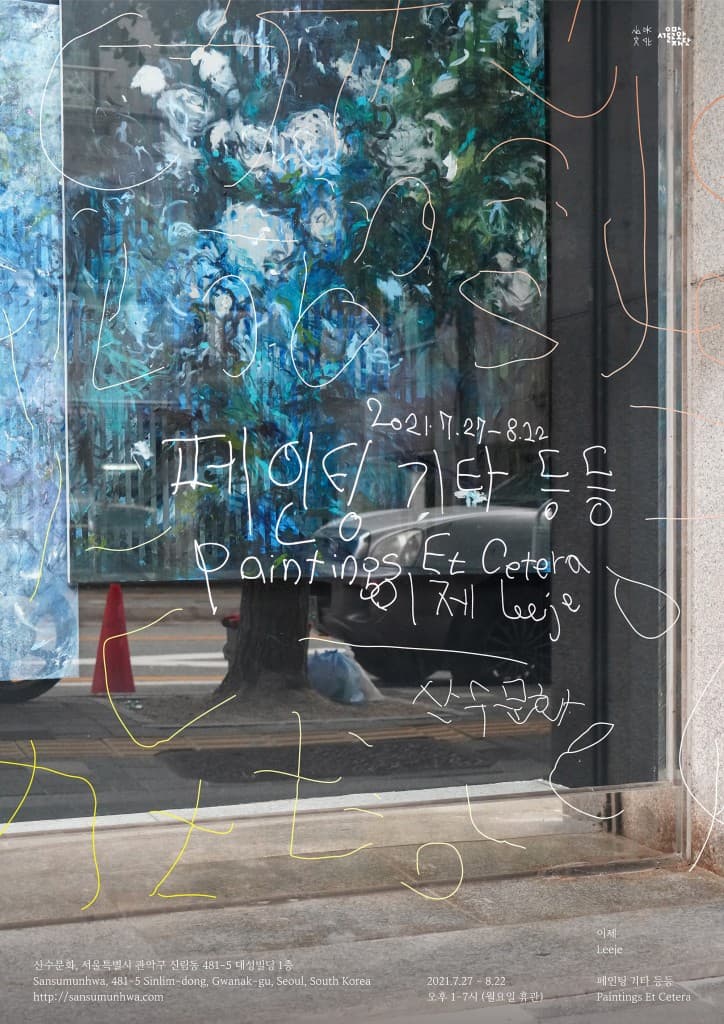 山水文化
서울문화재단
2021.7.27-8.22
페인팅 기타 등등
Paintings Et Cetera
이제 Leeje
산수문화
이제
Leeje
산수문화, 서울특별시 관악구 신림동 481-5 대성빌딩 1층
Sansumunhwa, 481-5 Sinlim-dong, Gwanak-gu, Seoul, South Korea
http://sansumunhwa.com
2021.7.27 - 8.22
오후 1-7시 (월요일 휴관)
페인팅 기타 등등
Paintings Et Cetera